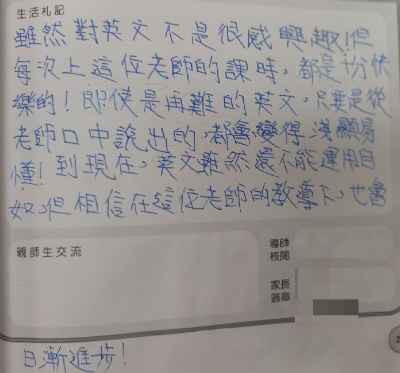 生活札記
雖然對英文不是很感興趣!但
每次上這位老師的課時,都是愉快
樂的!即使是再難的英文,只要是從
老師口中說出的,都會變得淺顯易
懂!到現在,英文雖然還不能運用自
如,但相信在這位老師的教導下,也會
親師生交流
導師
核閱
家長
簽章
日漸進步!